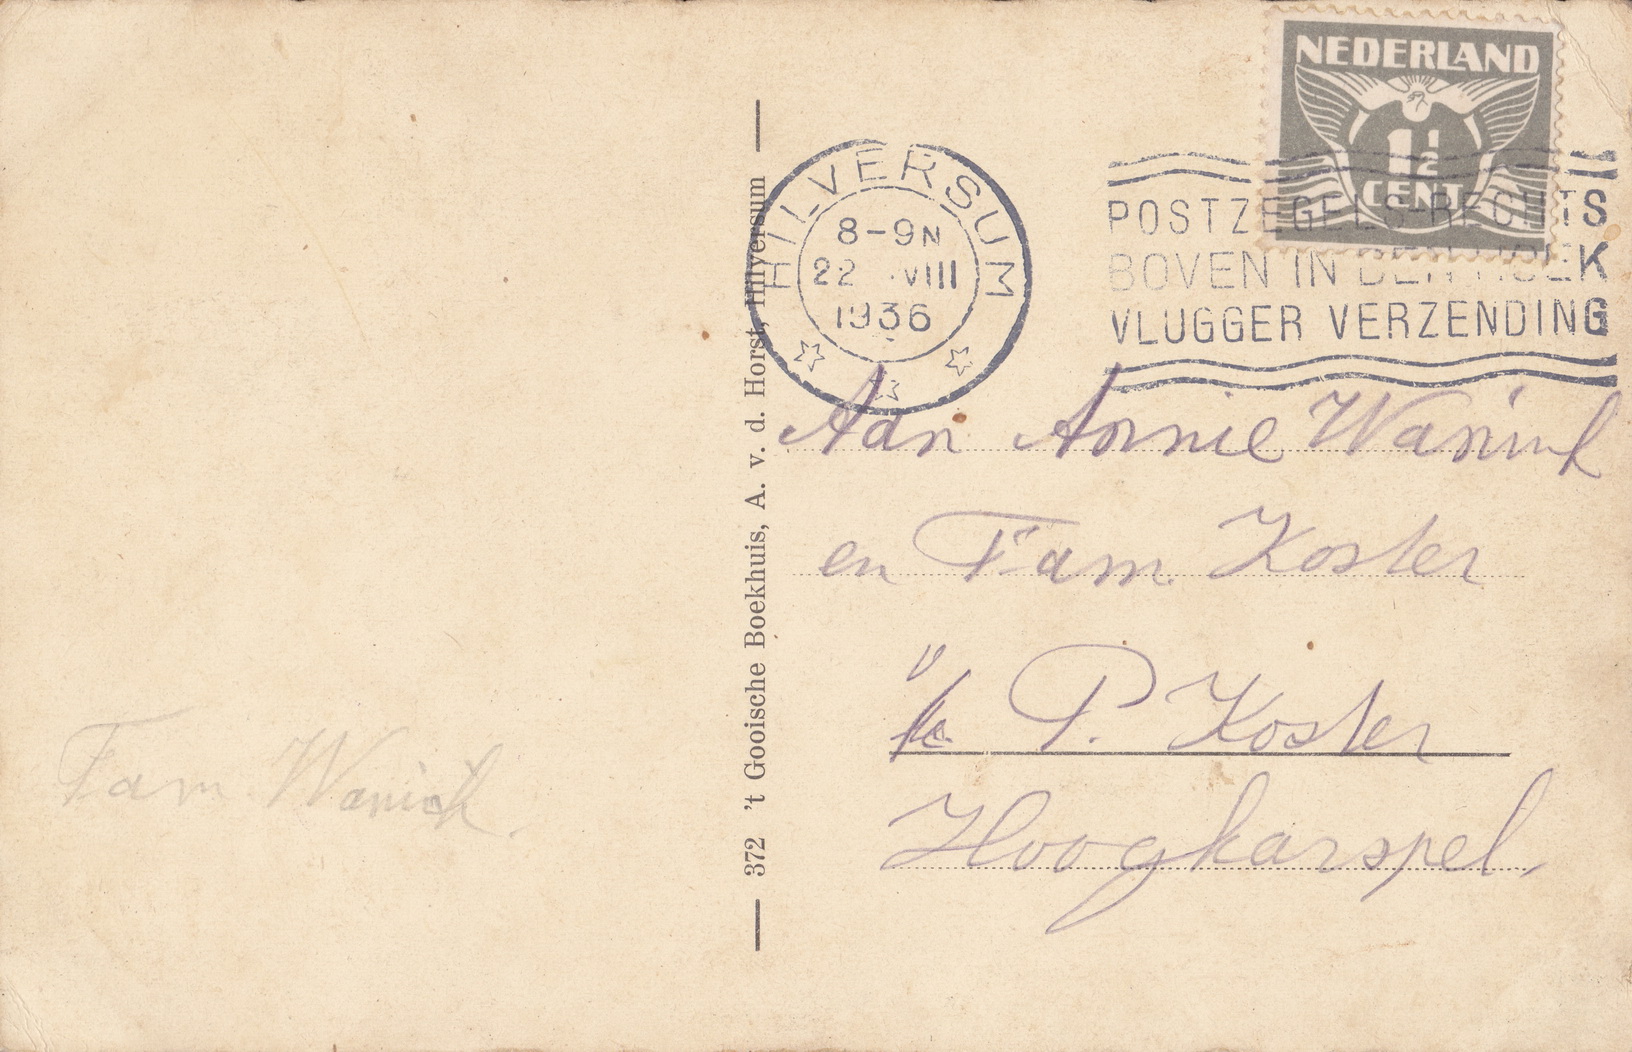 NEDERLAND
1½
CENT
HILVERSUM
8-9N
22 VIII
1936
POSTZEGELS-RECHTS
BOVEN IN DEN HOEK
VLUGGER VERZENDING
Aan Annie Wanink
en Fam. Koster
P. Koster
Hoogkarspel.
Fam. Wanink.
372 't Gooische Boekhuis, A. v. d. Horst, Hilversum